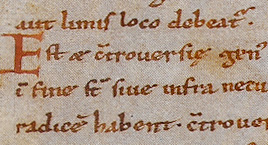 aut limis loco debeat᷑.
Est æ c̄trouersię gen᷒
ī fine st̄ siue infra netu
radicē habent. c̄trouer